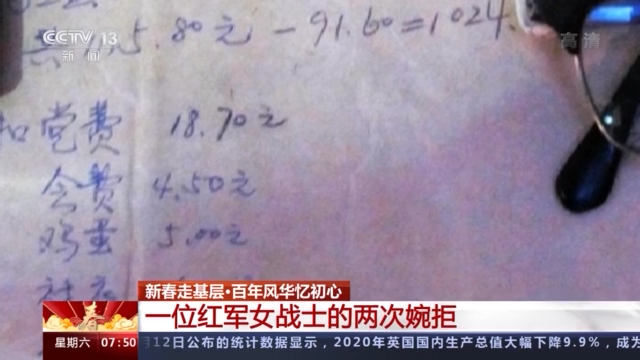 CCTV 13
新闻
高清
5.80元-91.60=1024.
扣党费 18.70元
会费 4.50元
鸡蛋 5.00元
新春走基层·百年风华忆初心
春
一位红军女战士的两次婉拒
星期六 07:50 月12日公布的统计数据显示，2020年英国国内生产总值大幅下降9.9%，成为